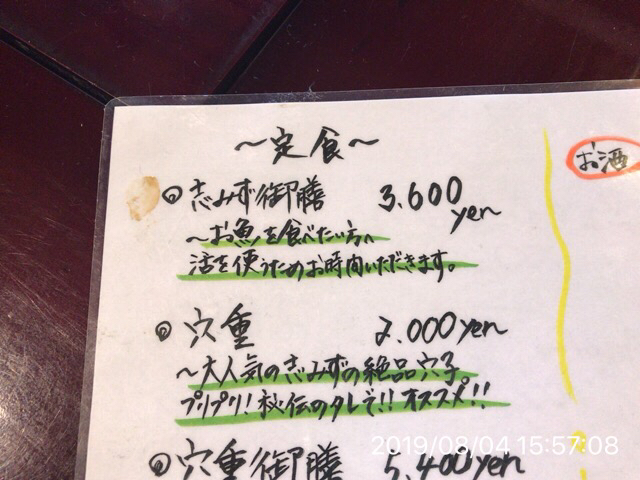 ～定食～
志みず御膳 3.600 yen
～お魚を食べたい方へ
活を使うためお時間いただきます。
穴重 2.000yen
～大人気の志みずの絶品穴子
プリプリ！秘伝のタレで!!オススメ!!
穴重御膳 5.400yen
お酒
2019/08/04 15:57:08